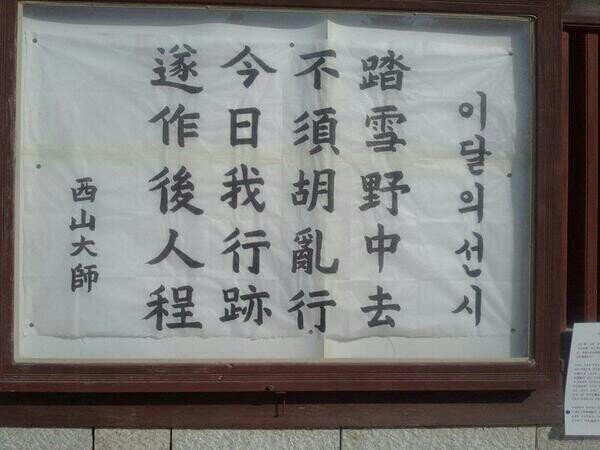 이달의선시
踏雪野中去
不須胡亂行
今日我行跡
遂作後人程
西山大師